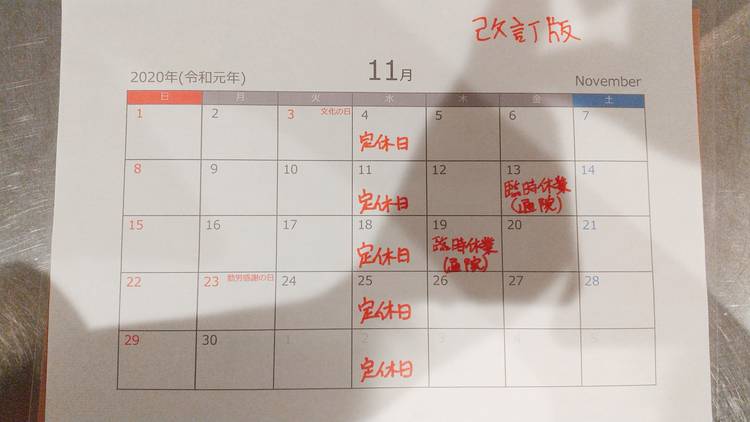 改訂版
2020年(令和元年)
11月
November
日 月 火 水 木 金 土
1 2 3 文化の日 4 5 6 7
定休日
8 9 10 11 12 13 14
定休日 臨時休業
(通院)
15 16 17 18 19 20 21
定休日 臨時休業
(通院)
22 23 勤労感謝の日 24 25 26 27 28
定休日
29 30 1 2 3 4 5
定休日